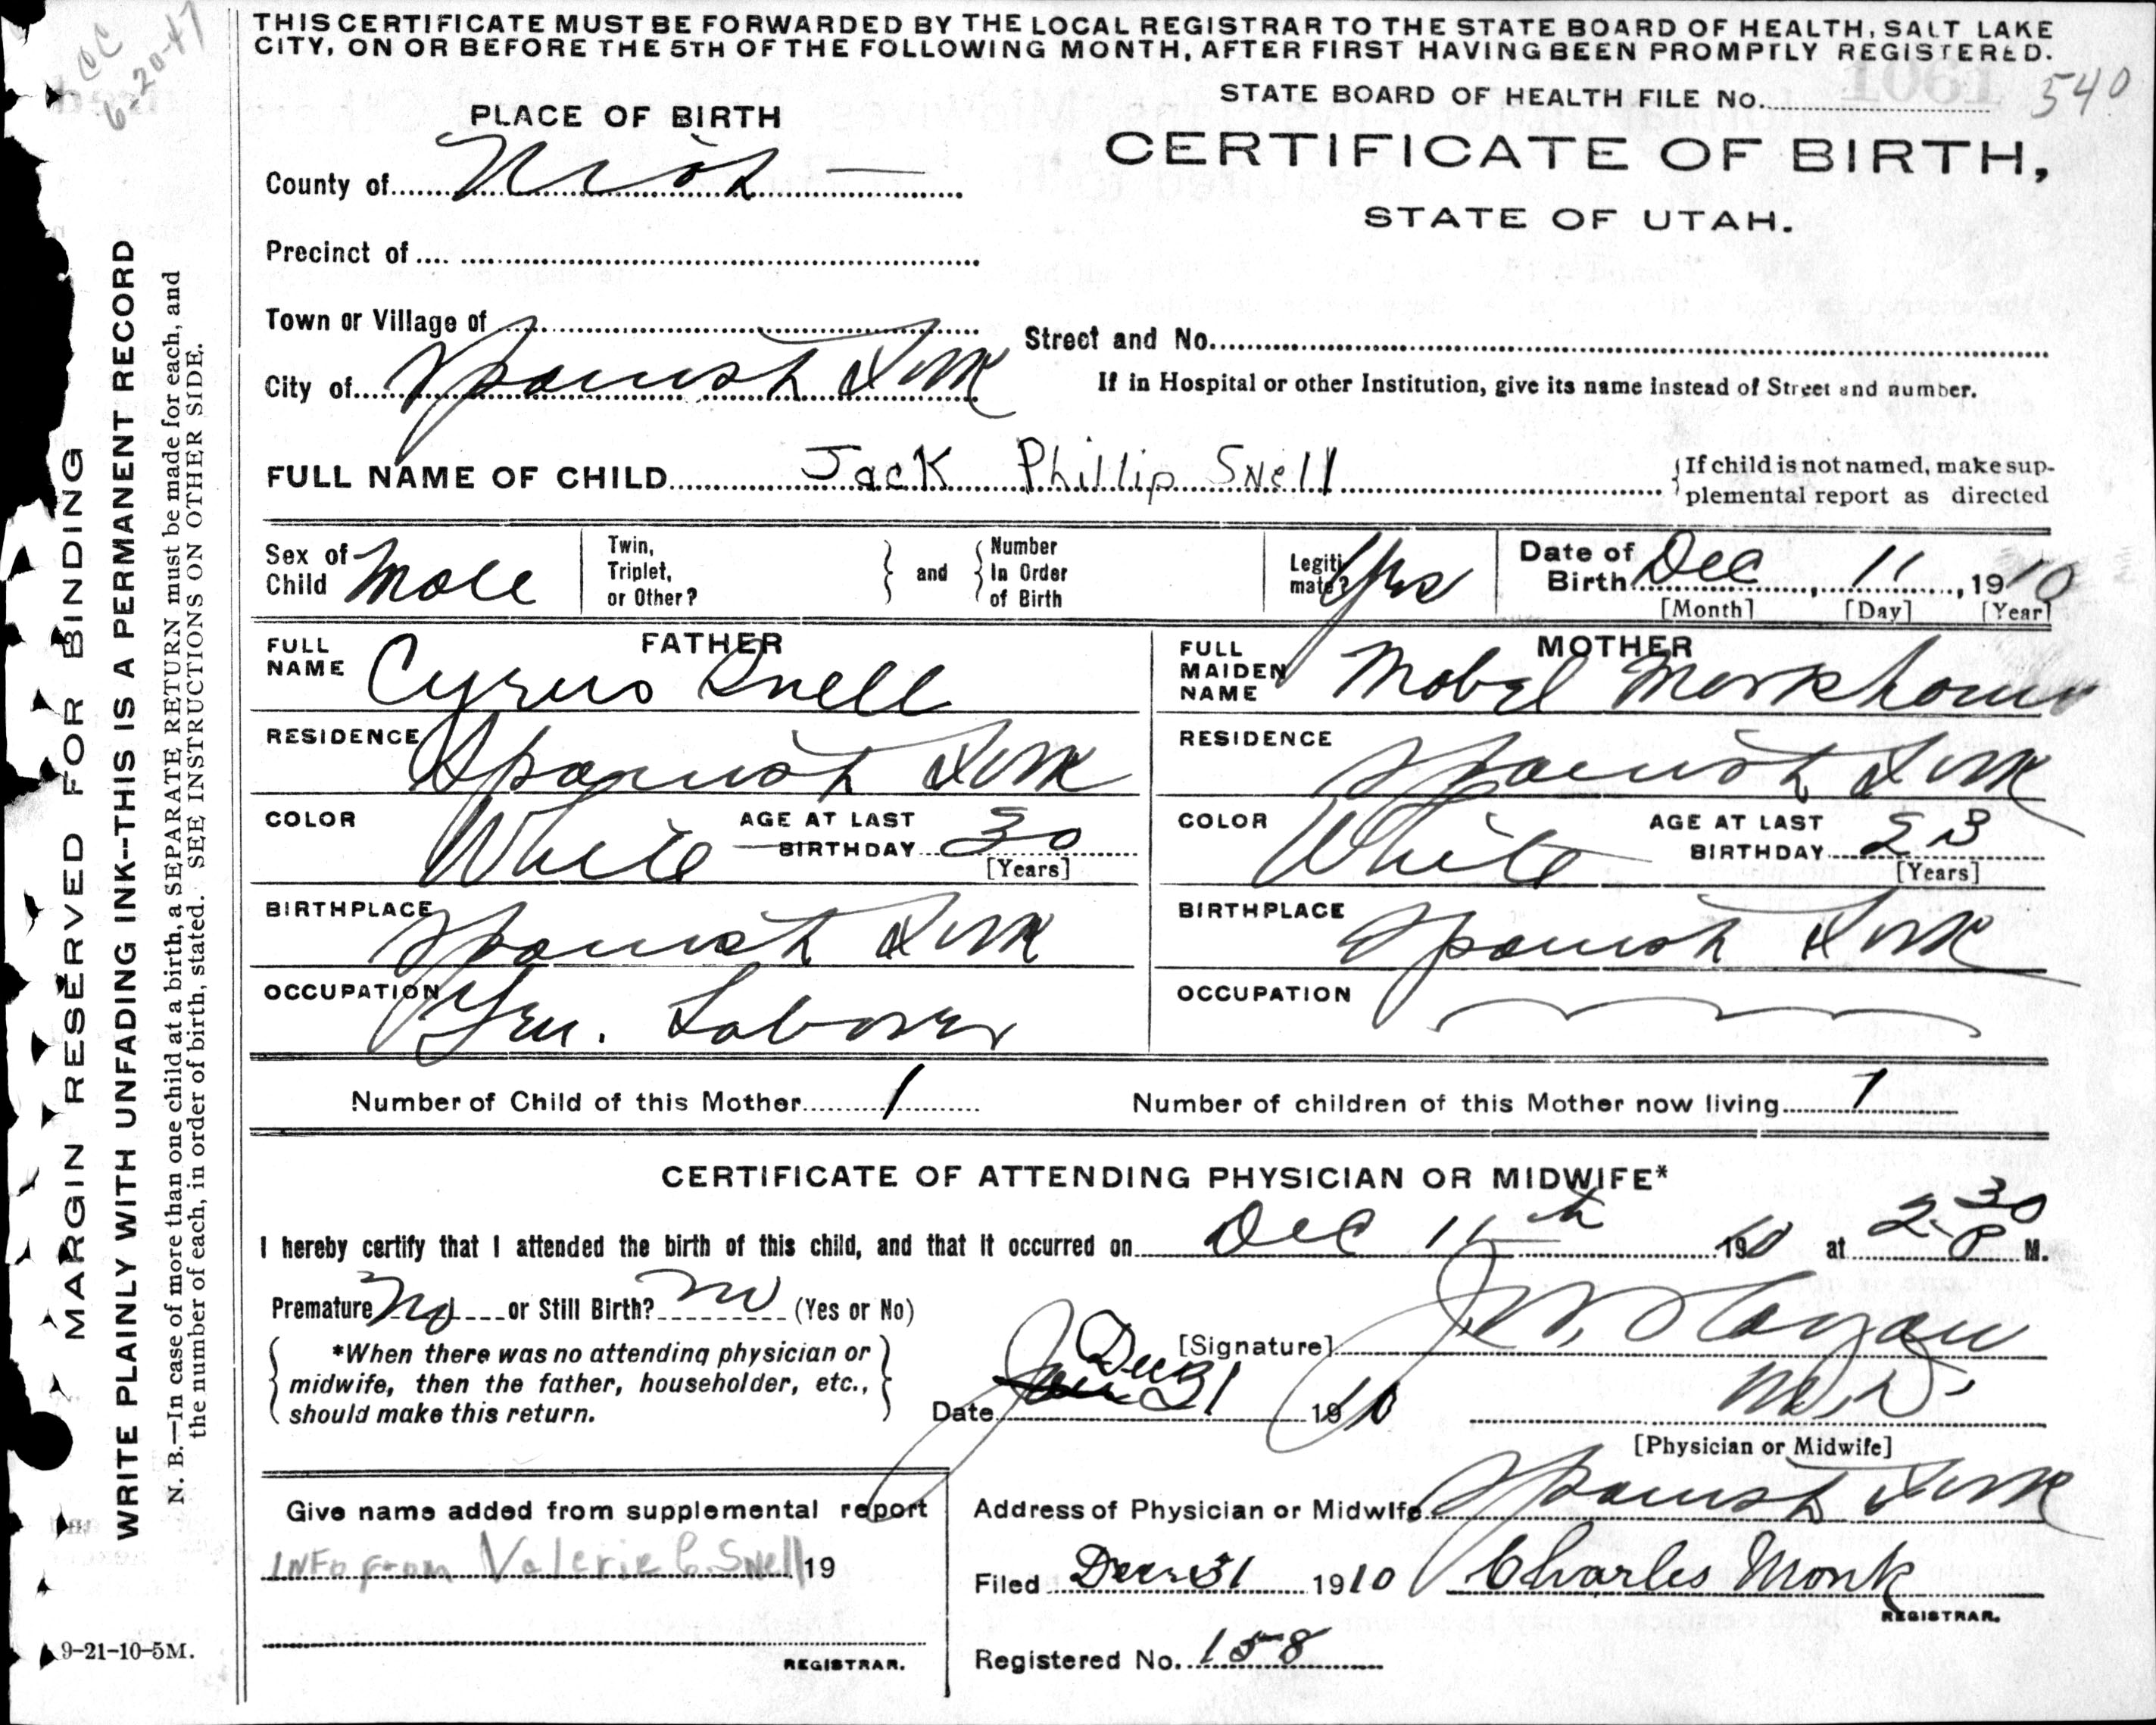 CC
6-20-47
THIS CERTIFICATE MUST BE FORWARDED BY THE LOCAL REGISTRAR TO THE STATE BOARD OF HEALTH, SALT LAKE
CITY, ON OR BEFORE THE 5TH OF THE FOLLOWING MONTH, AFTER FIRST HAVING BEEN PROMPTLY REGISTERED.
STATE BOARD OF HEALTH FILE No. 540
PLACE OF BIRTH
CERTIFICATE OF BIRTH,
STATE OF UTAH.
County of Utah
Precinct of
Town or Village of
Street and No.
City of Spanish Fork
If in Hospital or other Institution, give its name instead of Street and number.
FULL NAME OF CHILD Jack Phillip Snell
If child is not named, make sup-
plemental report as directed
Sex of Child Male
Twin, Triplet, or Other? and Number In Order of Birth
Legiti mate? Yes
Date of Birth Dec 11, 1910
[Month] [Day] [Year]
FATHER
FULL NAME Cyrus Snell
MOTHER
FULL MAIDEN NAME Mabel Markham
RESIDENCE Spanish Fork
RESIDENCE Spanish Fork
COLOR White AGE AT LAST BIRTHDAY 30 [Years]
COLOR White AGE AT LAST BIRTHDAY 23 [Years]
BIRTHPLACE Spanish Fork
BIRTHPLACE Spanish Fork
OCCUPATION Gen. Laborer
OCCUPATION
Number of Child of this Mother 1
Number of children of this Mother now living 1
CERTIFICATE OF ATTENDING PHYSICIAN OR MIDWIFE*
I hereby certify that I attended the birth of this child, and that it occurred on Dec 11th 1910 at 2 30 P M.
Premature No or Still Birth? No (Yes or No)
*When there was no attending physician or
midwife, then the father, householder, etc.,
should make this return.
[Signature] J. W. Hagan
M.D.
Date Dec 31 1910
[Physician or Midwife]
Give name added from supplemental report
INFO from Valerie C. Snell 19
REGISTRAR.
Address of Physician or Midwife Spanish Fork
Filed Dec 31 1910 Charles Monk
REGISTRAR.
Registered No. 158
9-21-10-5M.
MARGIN RESERVED FOR BINDING
WRITE PLAINLY WITH UNFADING INK--THIS IS A PERMANENT RECORD
N. B.—In case of more than one child at a birth, a SEPARATE RETURN must be made for each, and
the number of each, in order of birth, stated. SEE INSTRUCTIONS ON OTHER SIDE.